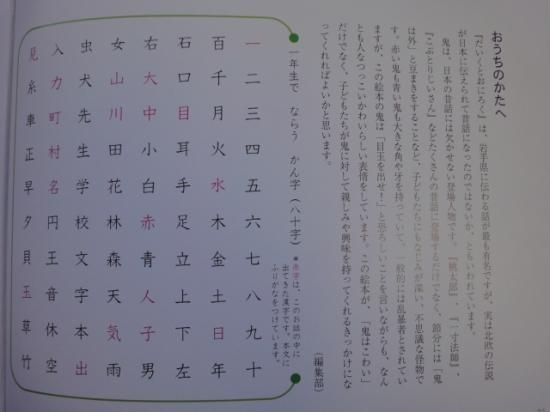 おうちのかたへ
『だいくとおにろく』は、岩手県に伝わる話が最も有名ですが、実は北欧の伝説
が日本に伝えられて昔話になったのではないか、ともいわれています。
鬼は、日本の昔話には欠かせない登場人物です。『桃太郎』、『一寸法師』、
『こぶとりじいさん』などたくさんの昔話に登場するだけでなく、節分には「鬼
は外」と豆まきをすることなど、子どもたちにもなじみが深い、不思議な怪物で
す。赤い鬼も青い鬼も大きな角や牙を持っていて、一般的には乱暴者とされてい
ますが、この絵本の鬼は「目玉を出せ！」と恐ろしいことを言いながらも、なん
とも人なつっこいかわいらしい表情をしています。この絵本が、「鬼はこわい」
だけでなく、子どもたちが鬼に対して親しみや興味を持ってくれるきっかけにな
ってくれればよいかと思います。
（編集部）
一年生で ならう かん字（八十字）
＊赤字は、このお話の中に
出てきた漢字です。本文に
ふりがなをつけています。
一二三四五六七八九十
百千月火水木金土日年
右石口目耳手足立上下左
大中小白赤青人子男
女山川田花林森天気雨
虫犬先生学校文字本出
入力町村名円王音休空
見糸車正早夕貝玉草竹